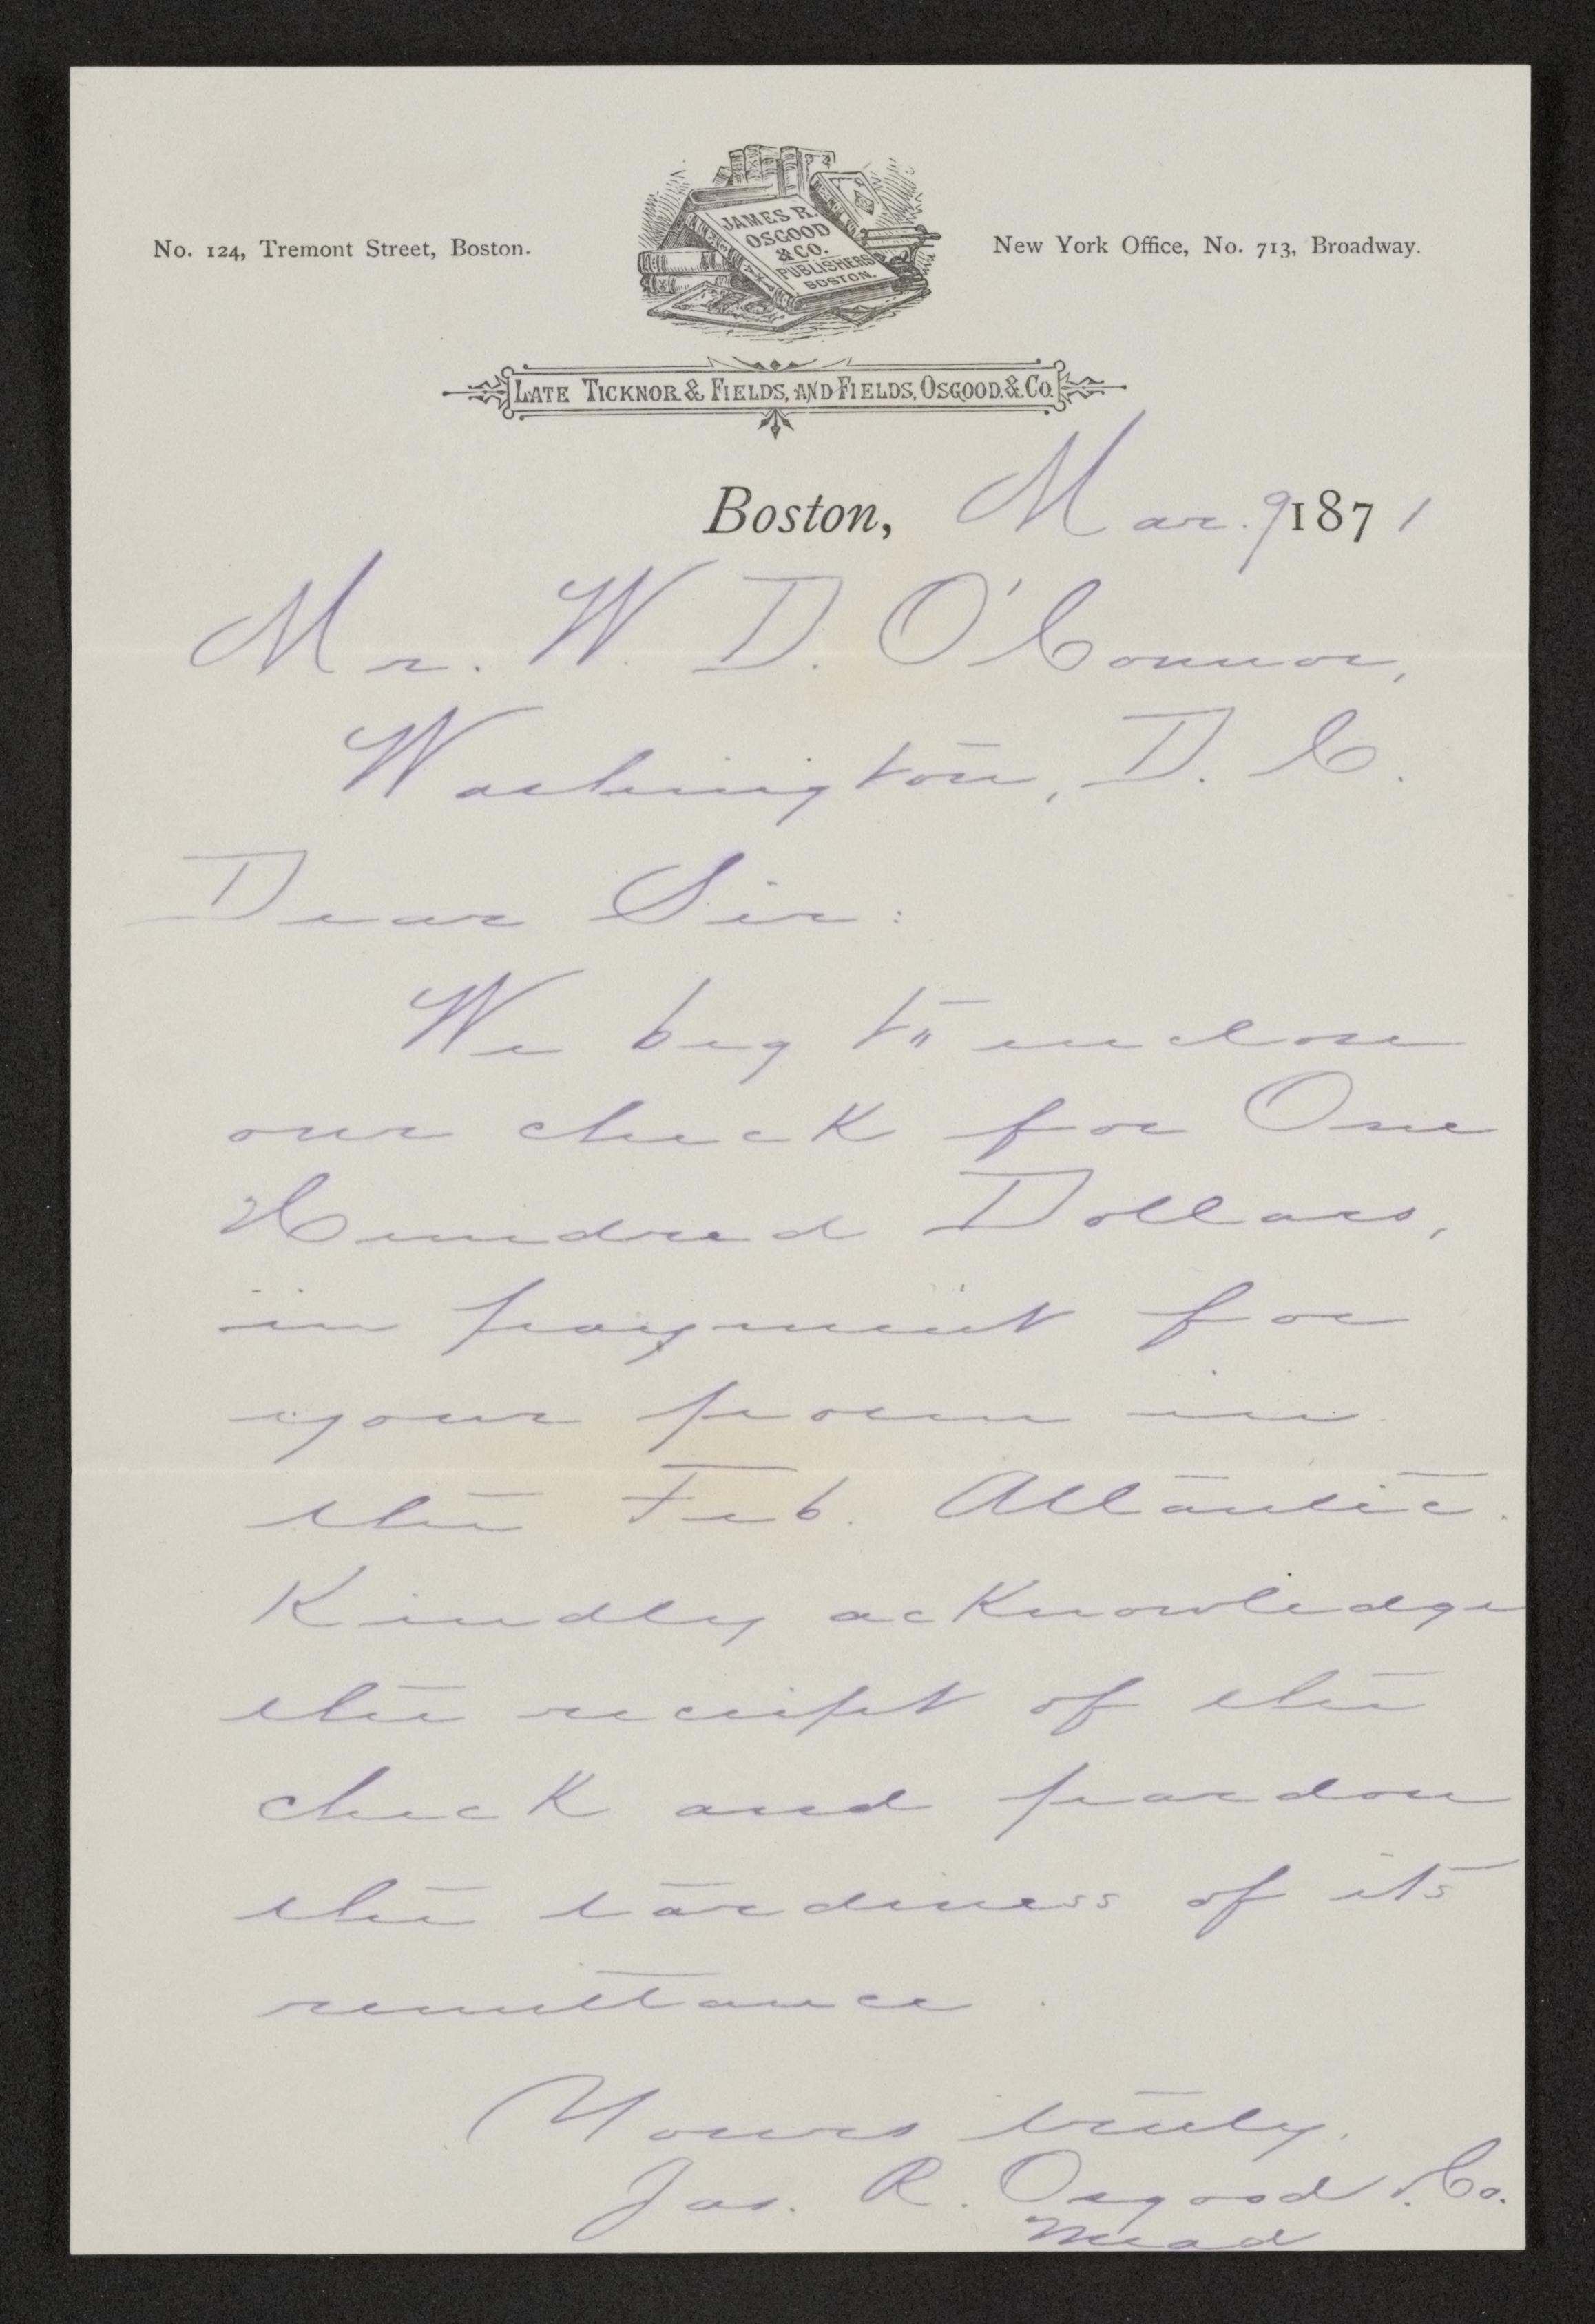 JAMES R.
OSGOOD
& CO.
PUBLISHERS
BOSTON.
No. 124, Tremont Street, Boston.
New York Office, No. 713, Broadway.
LATE TICKNOR & FIELDS, AND FIELDS, OSGOOD & CO.
Boston, Mar. 9 1871
Mr. W. D. O'Connor,
Washington, D. C.
Dear Sir:
We beg to enclose
our check for One
Hundred Dollars,
in payment for
your poem in
the Feb. Atlantic.
Kindly acknowledge
the receipt of the
check and pardon
the tardiness of its
remittance.
Yours truly,
Jas. R. Osgood & Co.
Mead